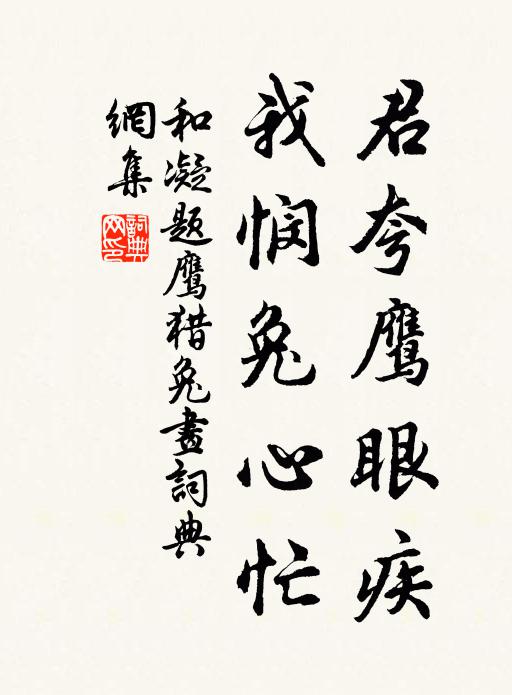 君夸鹰眼疾
我悯兔心忙
和凝题鹰猎兔畫詞典
網集
詞典
网印